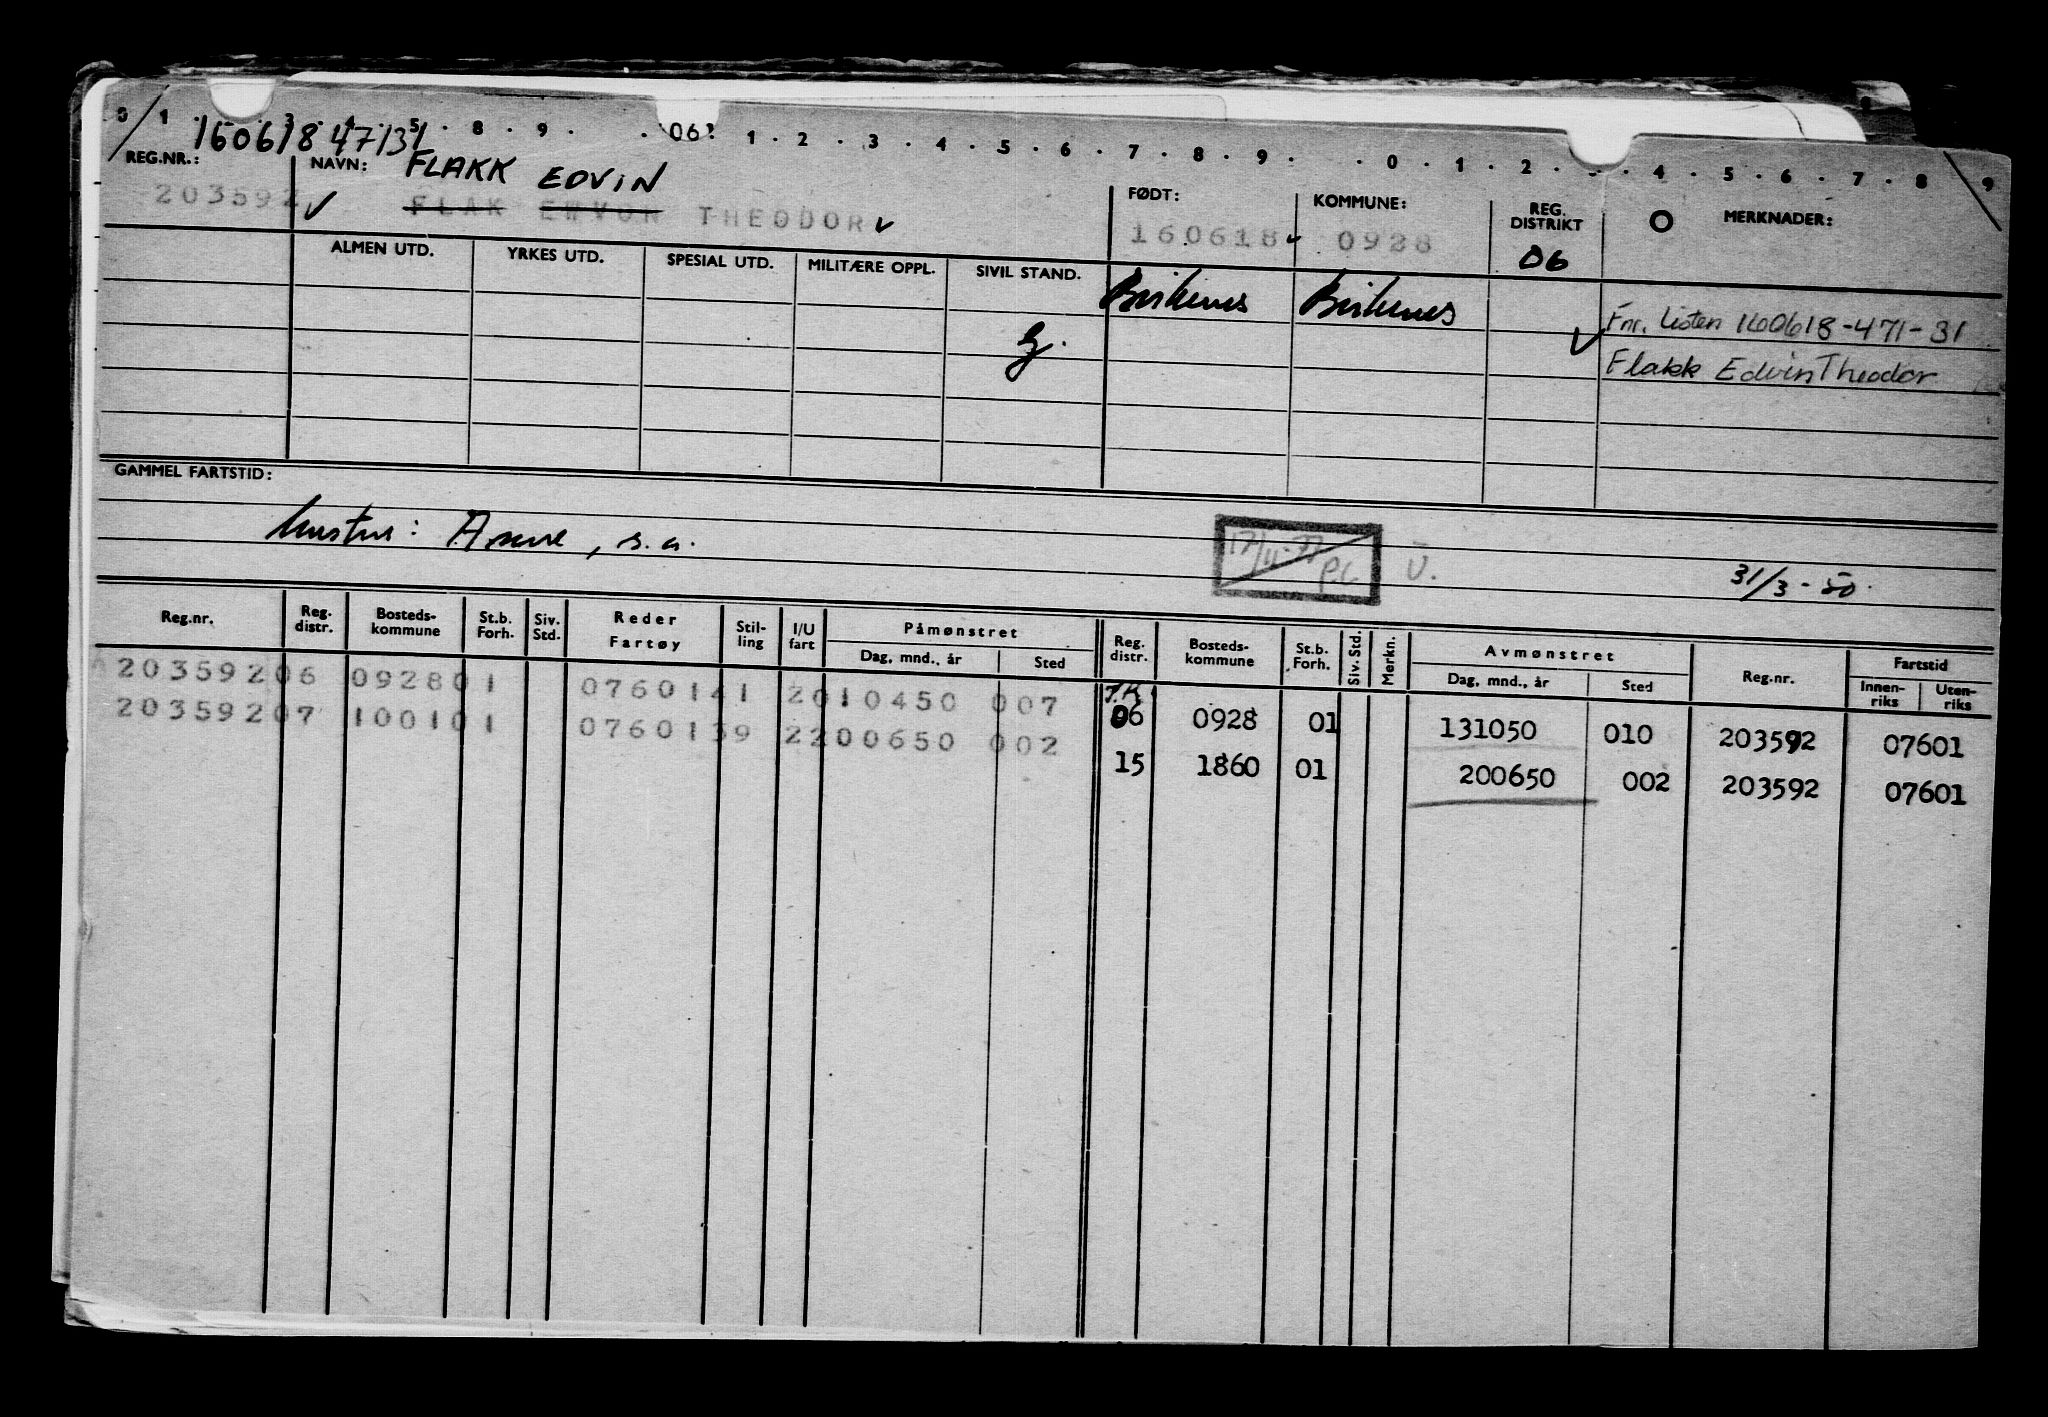 0 1 3 4 5 8 9 06? 1 2 3 4 5 6 7 8 9 0 1 2 3 4 5 6 7 8 9
160618 47131
REG.NR.: NAVN: FLAKK EDVIN FØDT: KOMMUNE: REG. DISTRIKT MERKNADER:
203592 FLAK THEODOR 160618 0928 06
ALMEN UTD. YRKES UTD. SPESIAL UTD. MILITÆRE OPPL. SIVIL STAND.
Birkenes Birkenes
G.
Fnr. Listen 160618-471-31
Flakk Edvin Theodor
GAMMEL FARTSTID:
hustru: Anne, s.a.
17/11-77 P.L. U. 31/3-50.
Reg.nr. Reg. distr. Bosteds-kommune St.b. Forh. Siv. Std. Reder Fartøy Stil-ling I/U fart Påmønstret Dag, mnd., år Sted Reg. distr. Bosteds-kommune St.b. Forh. Siv. Std. Merkn. Avmønstret Dag, mnd., år Sted Reg.nr. Fartstid Innen-riks Uten-riks
203592 06 0928 01 0760141 2010450 007 06 0928 01 131050 010 203592 07601
203592 07 1001 01 0760139 2200650 002 15 1860 01 200650 002 203592 07601